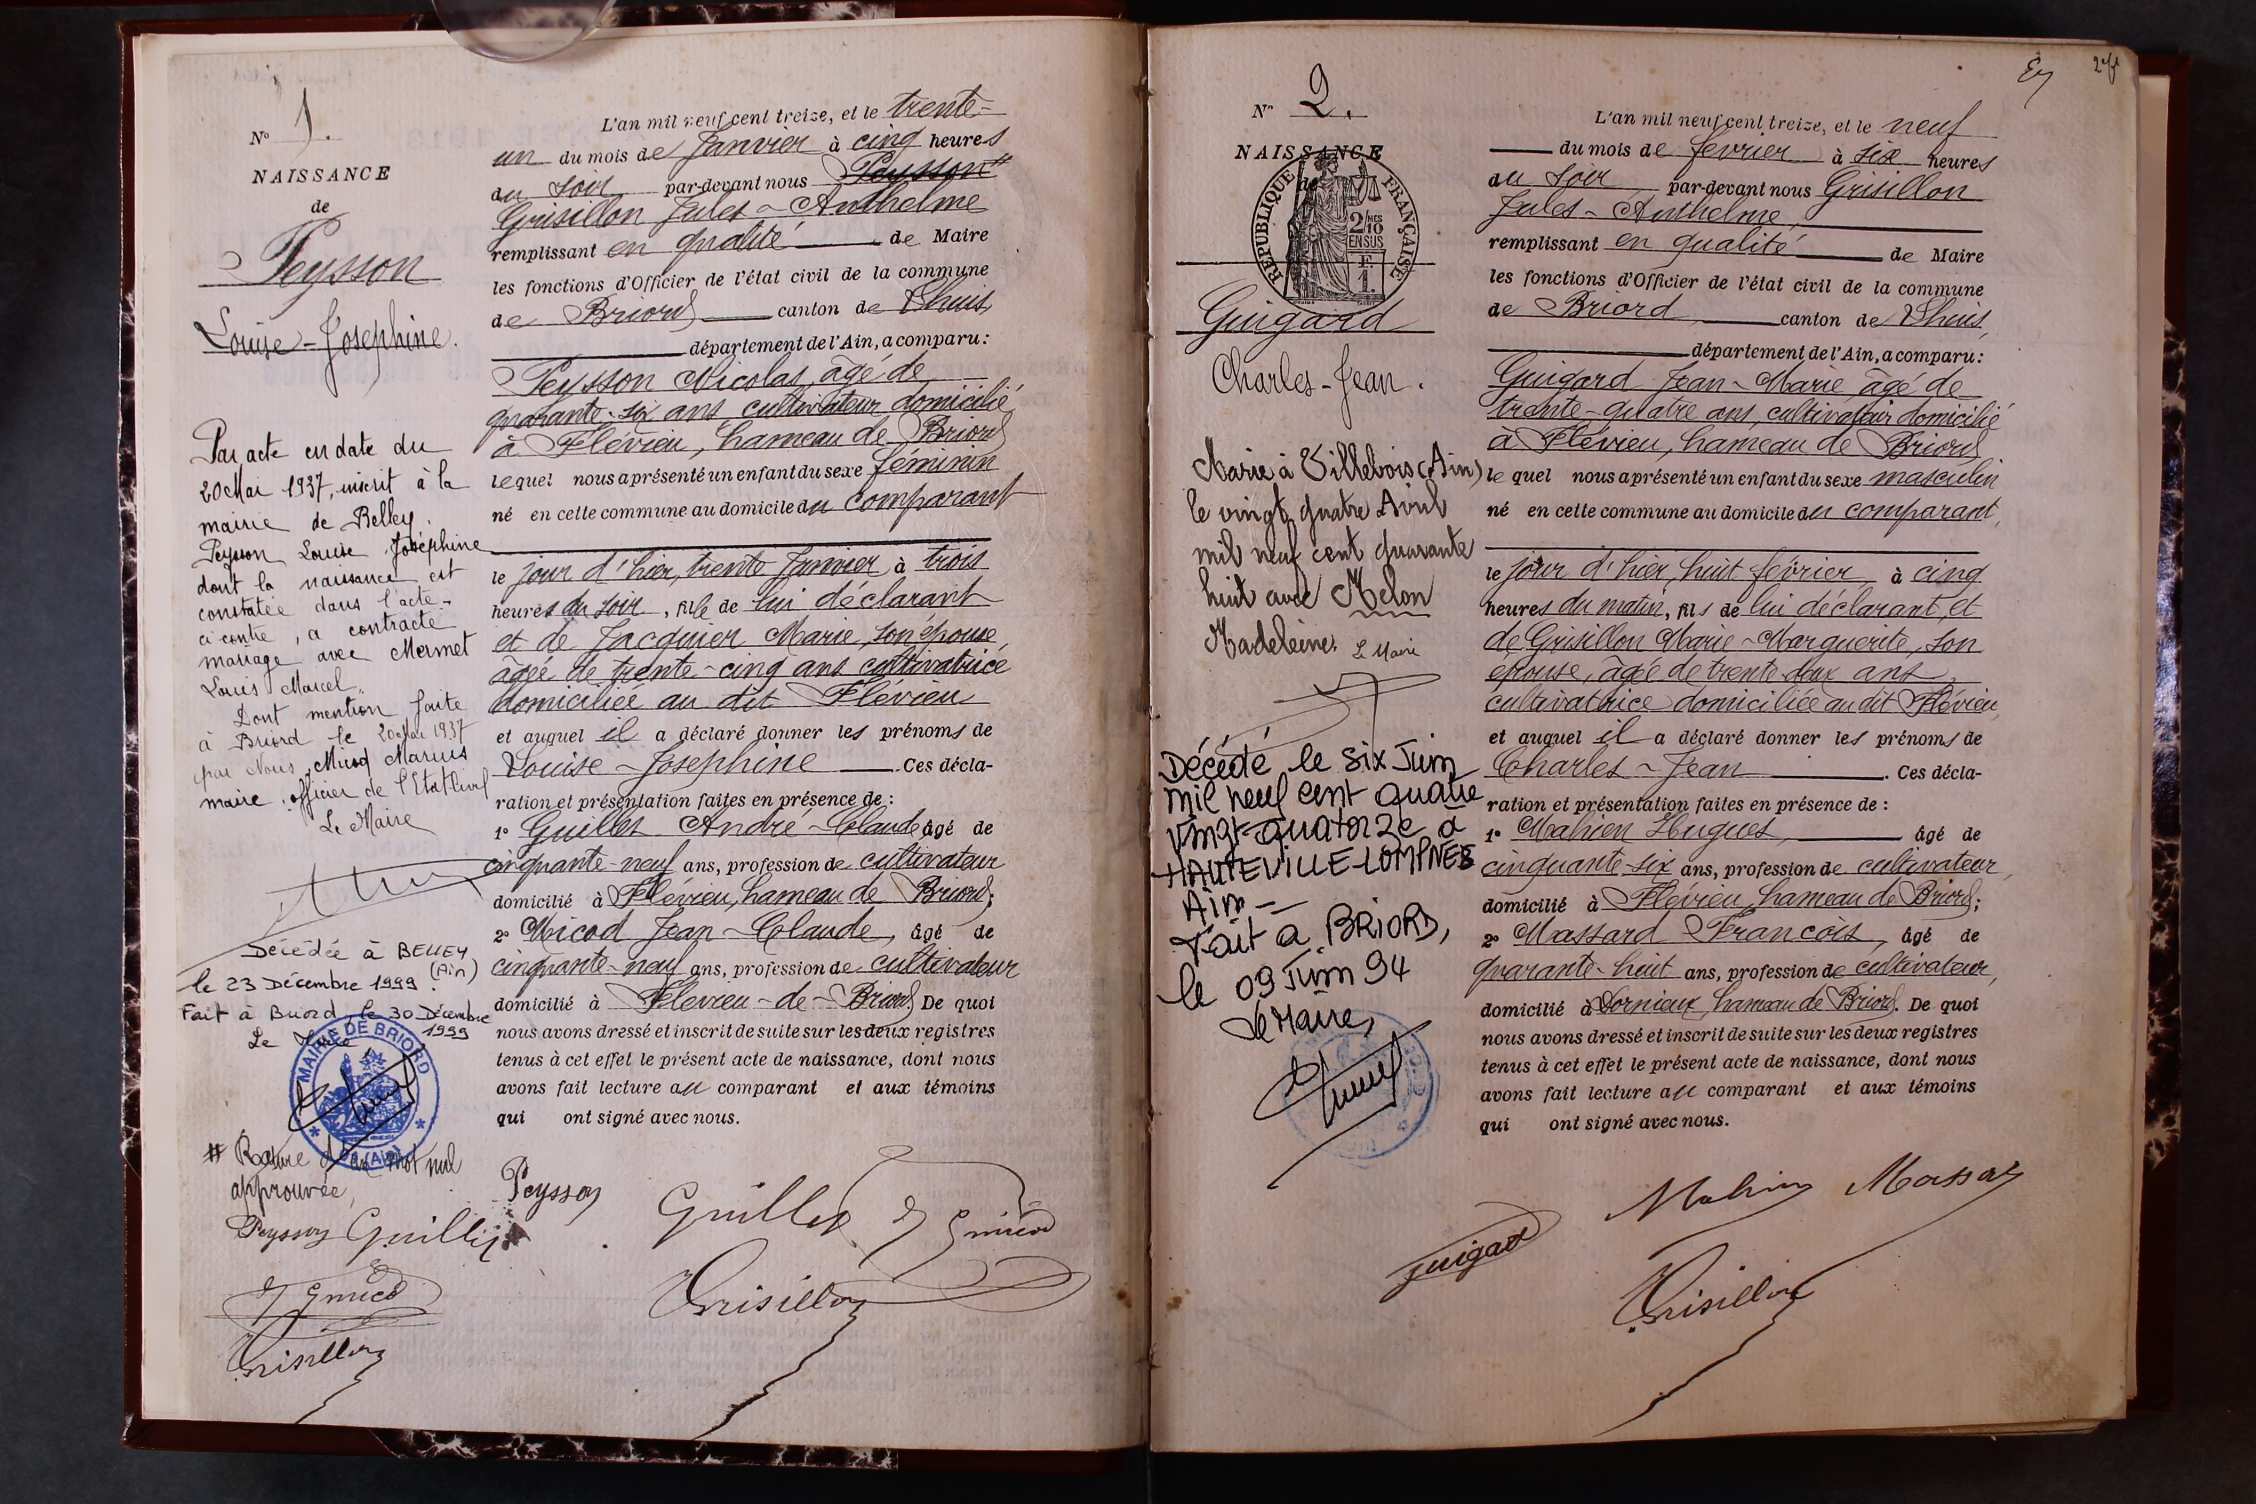 Nº 1.
NAISSANCE
de
Peysson
Louise-Josephine.
Par acte en date du
20 Mai 1937, inscrit à la
mairie de Belley,
Peysson Louise Joséphine
dont la naissance est
constatée dans l'acte
ci-contre, a contracté
mariage avec Mermet
Louis Marcel.
Dont mention faite
à Briord le 20 Mai 1937
par Nous, Micod Marius
maire, officier de l'Etat Civil
Le Maire
Décédée à BELLEY
(Ain)
le 23 Décembre 1999.
Fait à Briord, le 30 Décembre
1999
Le
MAIRIE DE BRIORD
(AIN)
# Rature d'un mot nul
approuvée,
Peysson Guillet
J Gmicod
Grisillon
L'an mil neuf cent treize, et le trente-
un du mois de Janvier à cinq heures
du soir par-devant nous Peysson #
Grisillon Jules-Anthelme
remplissant en qualité de Maire
les fonctions d'Officier de l'état civil de la commune
de Briord canton de Lhuis,
département de l'Ain, a comparu:
Peysson Nicolas, âgé de
quarante-six ans, cultivateur domicilié
à Flévieu, hameau de Briord
lequel nous a présenté un enfant du sexe féminin
né en cette commune au domicile du comparant
le jour d'hier, trente Janvier à trois
heures du soir, fille de lui déclarant
et de Jacquier Marie, son épouse
âgée de trente-cinq ans cultivatrice
domiciliée au dit Flévieu
et auquel il a déclaré donner les prénoms de
Louise-Josephine Ces décla-
ration et présentation faites en présence de:
1º Guillet André-Claude âgé de
cinquante-neuf ans, profession de cultivateur
domicilié à Flévieu, hameau de Briord;
2º Micod Jean-Claude, âgé de
cinquante-neuf ans, profession de cultivateur
domicilié à Flévieu-de-Briord. De quoi
nous avons dressé et inscrit de suite sur les deux registres
tenus à cet effet le présent acte de naissance, dont nous
avons fait lecture au comparant et aux témoins
qui ont signé avec nous.
Peysson Guillet J Gmicod
Grisillon
2
Nº 2.
NAISSANCE
de
RÉPUBLIQUE FRANÇAISE
2/10 MES
EN SUS
F.
1.
Guigard
Charles-Jean.
Marié à Villebois (Ain)
le vingt quatre Avril
mil neuf cent quarante
huit avec Melon
Madeleine. Le Maire
Décédé le six Juin
mil neuf cent quatre
vingt-quatorze à
HAUTEVILLE-LOMPNES
Ain -
Fait à BRIORD,
le 09 Juin 94
Le Maire,
L'an mil neuf cent treize, et le neuf
du mois de février à six heures
du soir par-devant nous Grisillon
Jules-Anthelme
remplissant en qualité de Maire
les fonctions d'Officier de l'état civil de la commune
de Briord canton de Lhuis,
département de l'Ain, a comparu:
Guigard Jean-Marie âgé de
trente-quatre ans, cultivateur domicilié
à Flévieu, hameau de Briord
lequel nous a présenté un enfant du sexe masculin
né en cette commune au domicile du comparant,
le jour d'hier, huit février à cinq
heures du matin, fils de lui déclarant, et
de Grisillon Marie-Marguerite, son
épouse, âgée de trente-deux ans,
cultivatrice domiciliée au dit Flévieu,
et auquel il a déclaré donner les prénoms de
Charles-Jean. Ces décla-
ration et présentation faites en présence de:
1º Mahien Hugues, âgé de
cinquante-six ans, profession de cultivateur,
domicilié à Flévieu, hameau de Briord;
2º Massard François, âgé de
quarante-huit ans, profession de cultivateur,
domicilié à Vornieux, hameau de Briord. De quoi
nous avons dressé et inscrit de suite sur les deux registres
tenus à cet effet le présent acte de naissance, dont nous
avons fait lecture au comparant et aux témoins
qui ont signé avec nous.
Guigard Mahien Massard
Grisillon